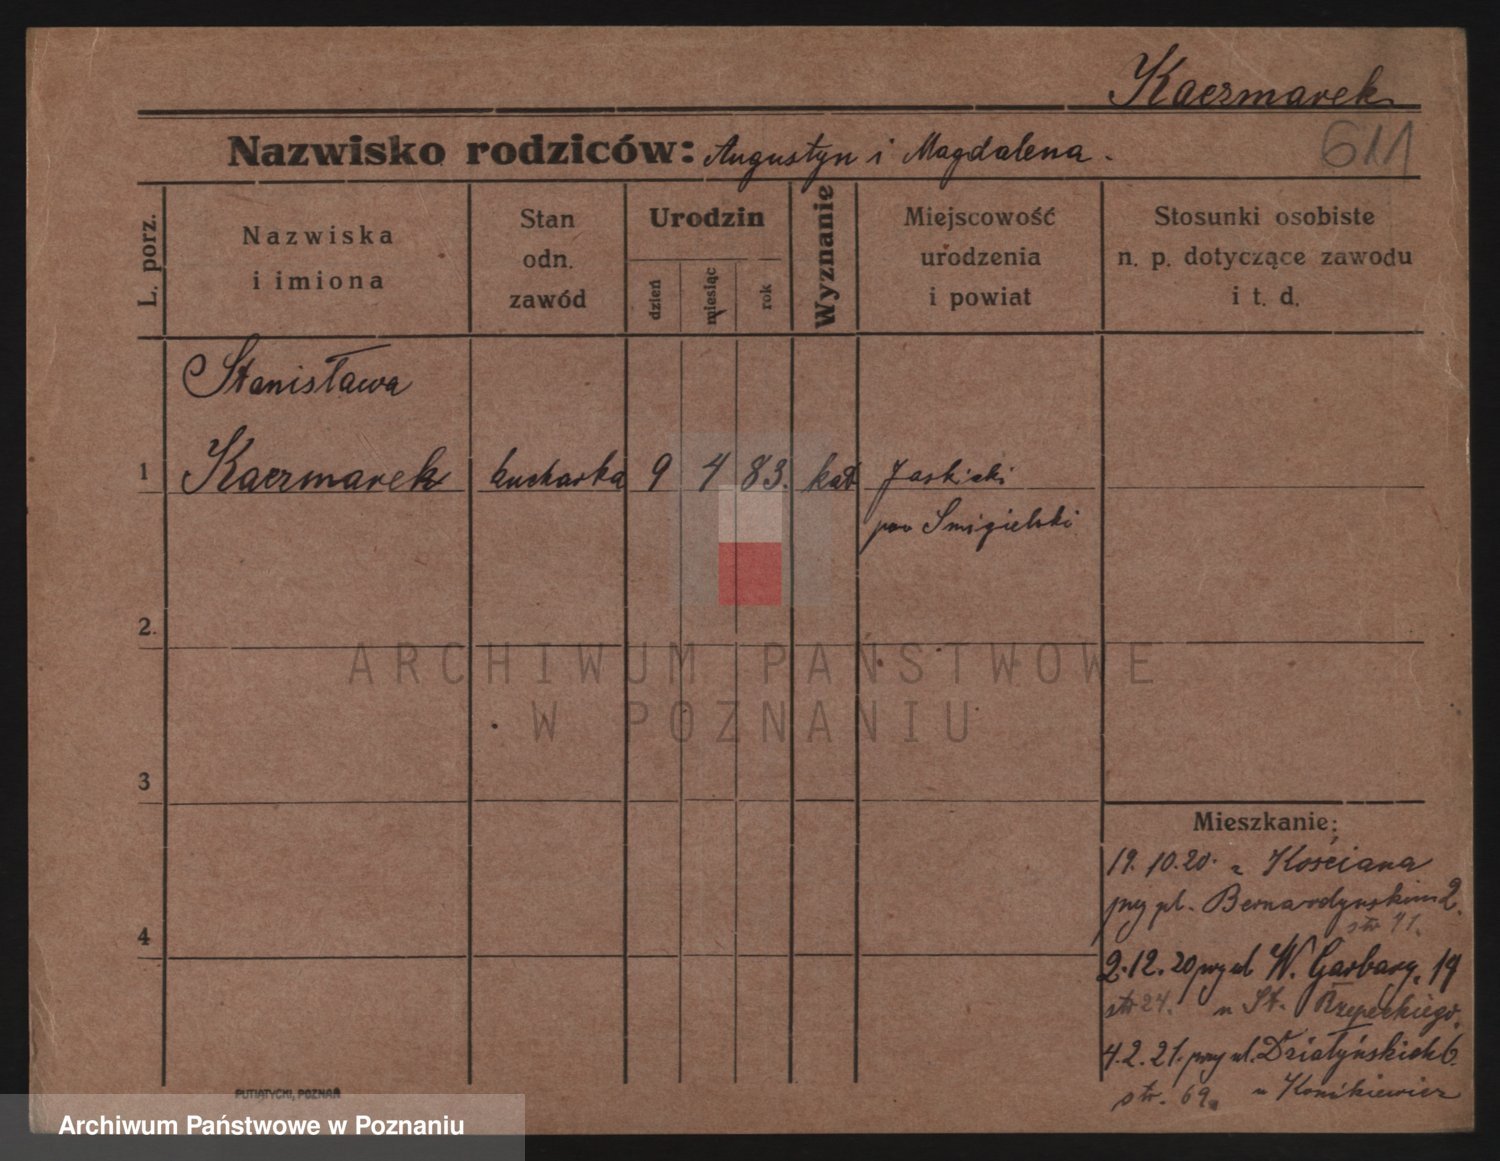 Kaczmarek
611
Nazwisko rodziców: Augustyn i Magdalena.
L. porz.
Nazwiska
i imiona
Stan
odn.
zawód
Urodzin
dzień
miesiąc
rok
Wyznanie
Miejscowość
urodzenia
i powiat
Stosunki osobiste
n. p. dotyczące zawodu
i t. d.
Stanisława
1 Kaczmarek kucharka 9 4 83. kat
pow Smigielski
2.
ARCHIWUM PAŃSTWOWE
W POZNANIU
3
Mieszkanie:
19. 10. 20. z Kościana
przy pl. Bernardyńskim 2.
str 41.
4
2. 12. 20 przy ul W. Garbary. 19
str 24. u St. Rzepeckiego.
4. 2. 21. przy ul. Działyńskich 6.
str. 69. u Konikiewicz
PUTIATYCKI, POZNAŃ
Archiwum Państwowe w Poznaniu